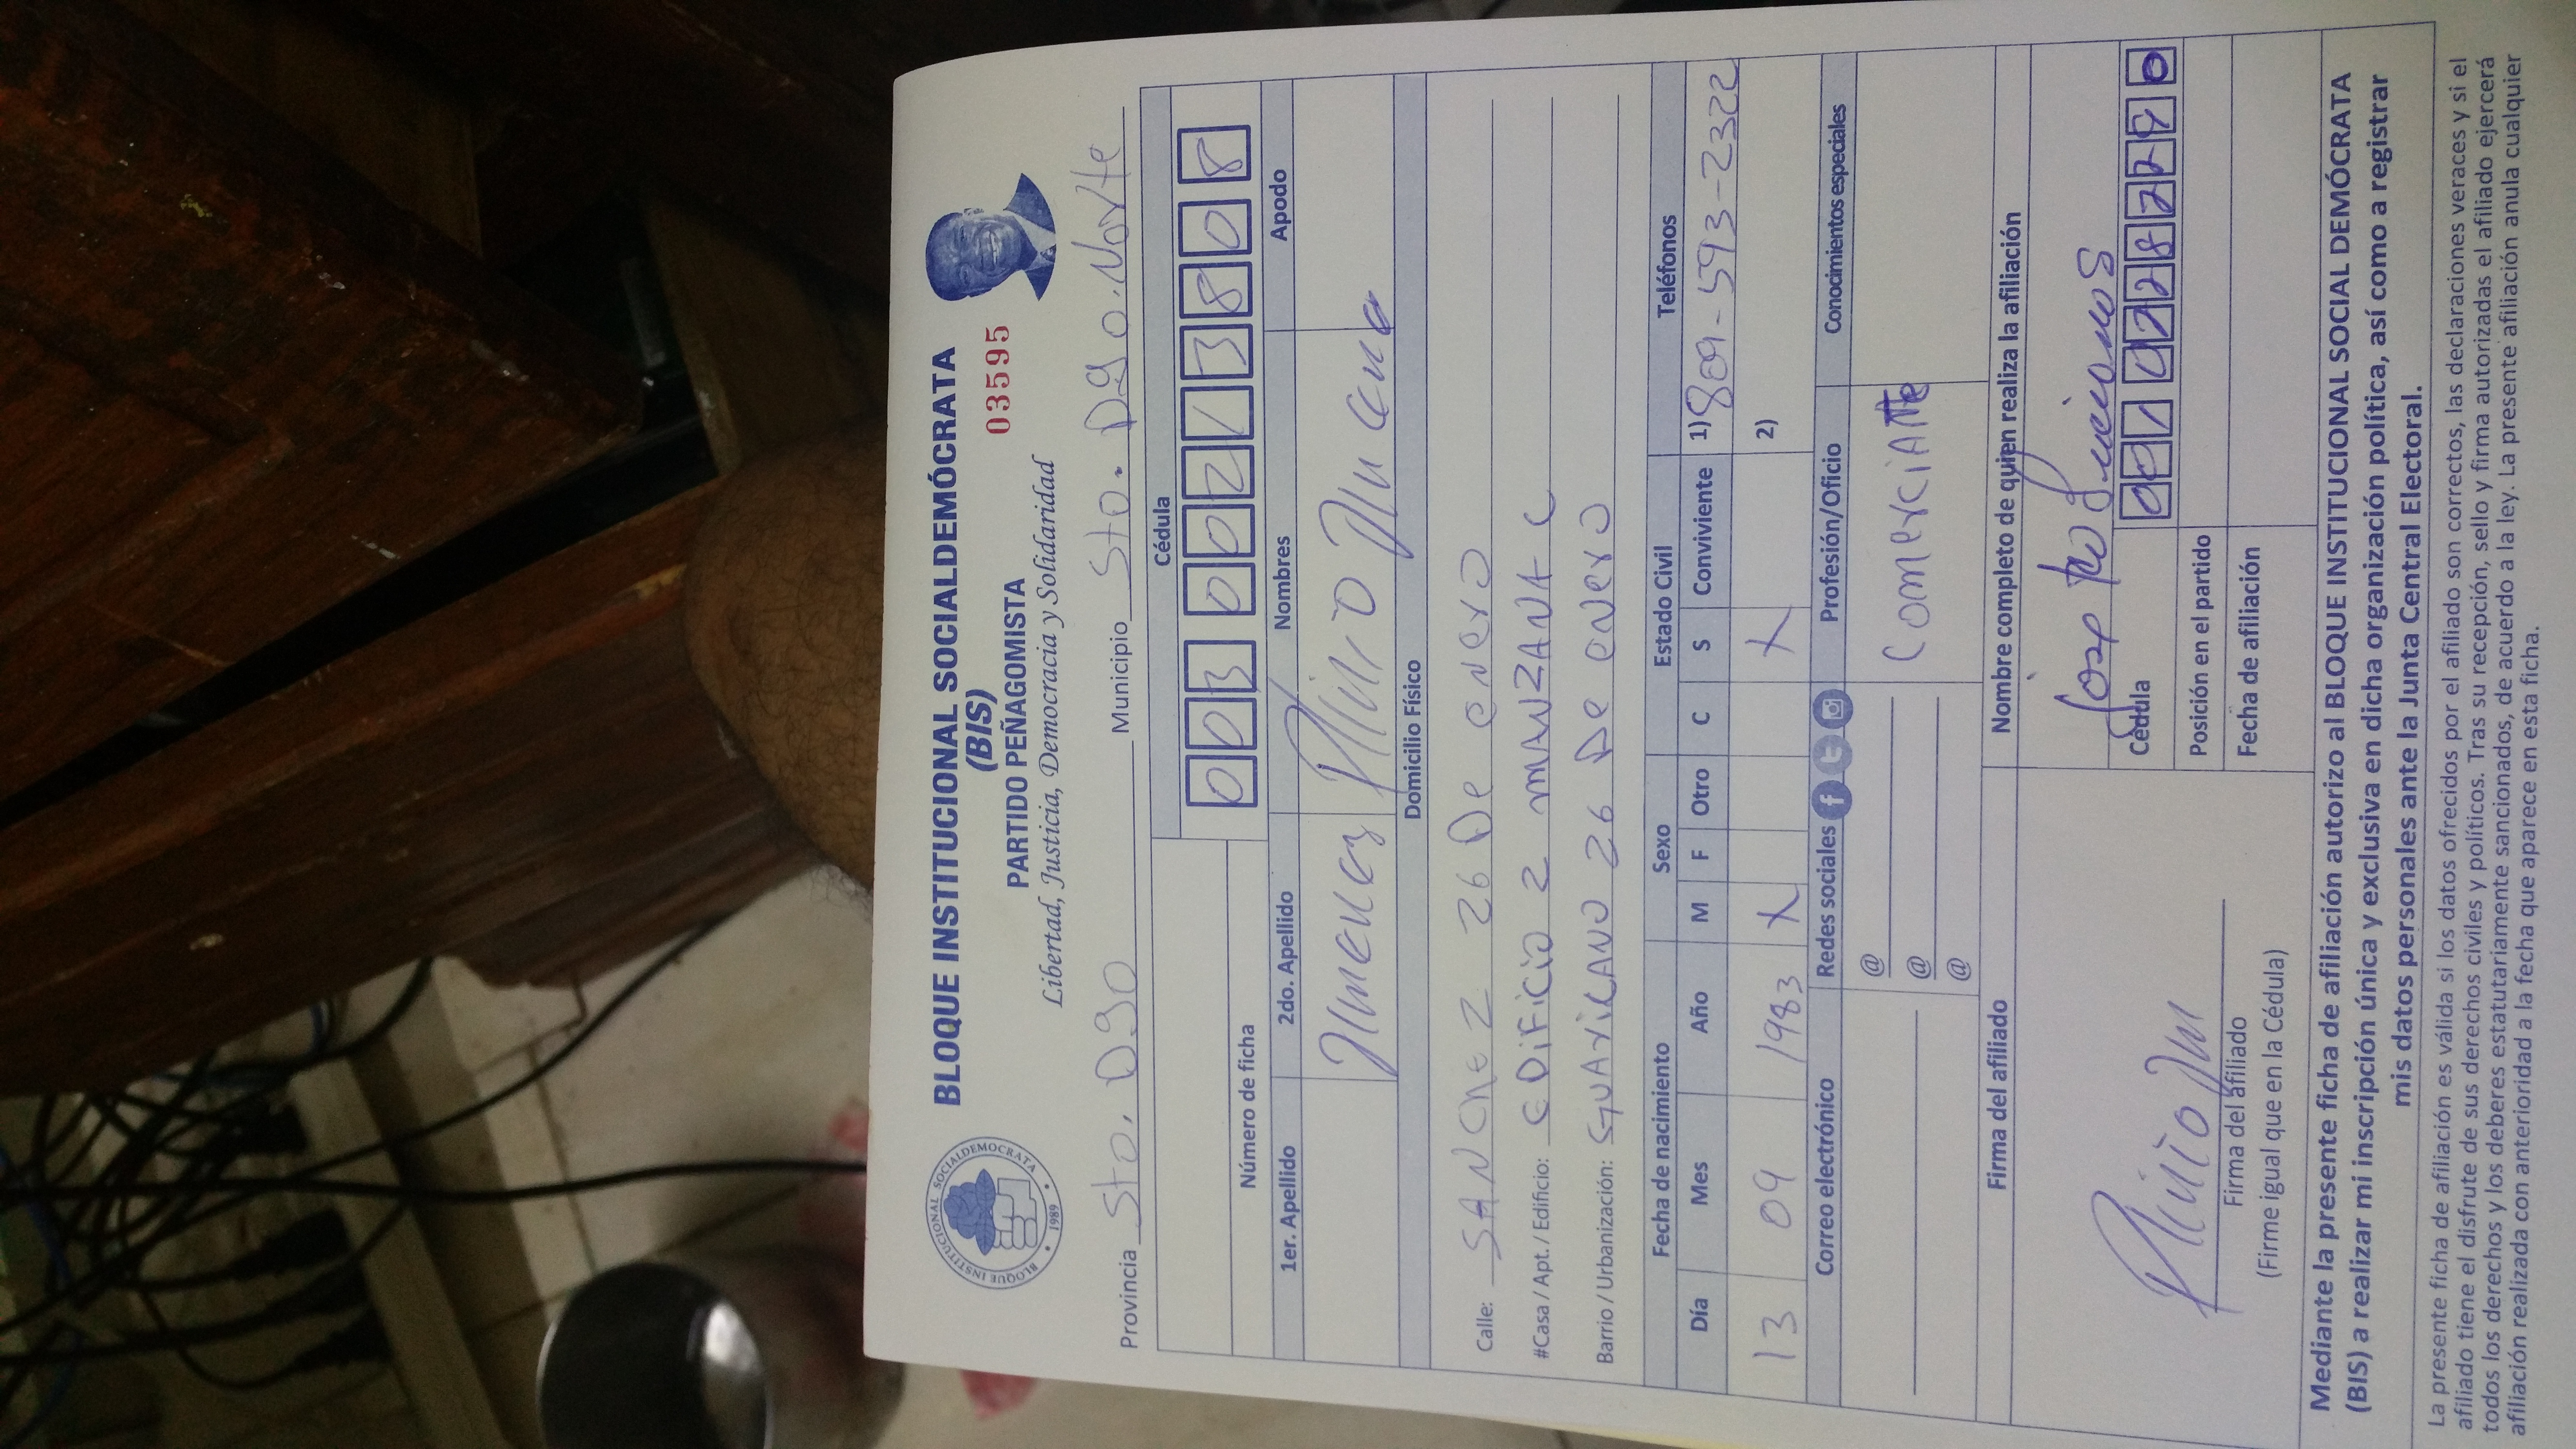 BLOQUE INSTITUCIONAL SOCIALDEMÓCRATA
(BIS)
PARTIDO PEÑAGOMISTA
03595
Libertad, Justicia, Democracia y Solidaridad
BLOQUE INSTITUCIONAL SOCIALDEMOCRATA
1989
Provincia Sto. Dgo Municipio Sto. Dgo. Norte
Número de ficha
Cédula
0 0 3 0 0 2 1 3 8 0 8
1er. Apellido 2do. Apellido Nombres Apodo
Domicilio Físico
Calle: SANCHEZ 26 De eNero
#Casa / Apt. / Edificio: eDiFiCiO 2 mANZANA C
Barrio / Urbanización: GUARICANO 26 De eNerO
Fecha de nacimiento Sexo Estado Civil Teléfonos
Día Mes Año M F Otro C S Conviviente 1) 809-593-2322
13 09 1983 X X 2)
Correo electrónico Redes sociales Profesión/Oficio Conocimientos especiales
@
@
@
ComerciANTe
Firma del afiliado Nombre completo de quien realiza la afiliación
Cédula
Posición en el partido
Fecha de afiliación
Firma del afiliado
(Firme igual que en la Cédula)
Mediante la presente ficha de afiliación autorizo al BLOQUE INSTITUCIONAL SOCIAL DEMÓCRATA
(BIS) a realizar mi inscripción única y exclusiva en dicha organización política, así como a registrar
mis datos personales ante la Junta Central Electoral.
La presente ficha de afiliación es válida si los datos ofrecidos por el afiliado son correctos, las declaraciones veraces y si el
afiliado tiene el disfrute de sus derechos civiles y políticos. Tras su recepción, sello y firma autorizadas el afiliado ejercerá
todos los derechos y los deberes estatutariamente sancionados, de acuerdo a la ley. La presente afiliación anula cualquier
afiliación realizada con anterioridad a la fecha que aparece en esta ficha.